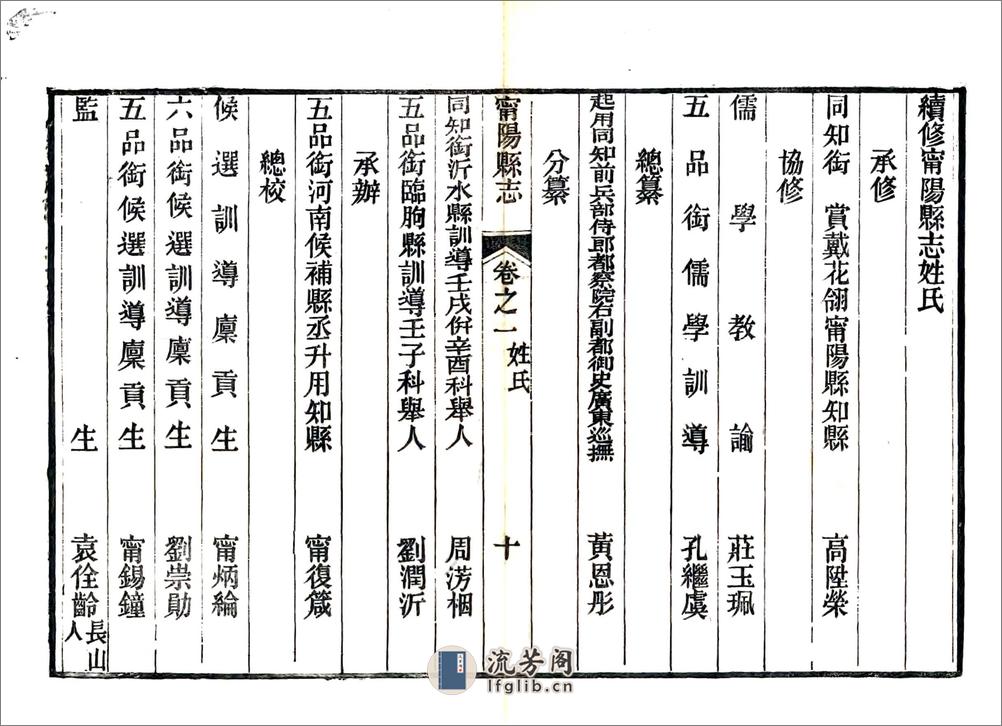 續修甯陽縣志姓氏
承修
同知銜 賞戴花翎甯陽縣知縣 高陞榮
協修
儒學教諭 莊玉珮
五品銜儒學訓導 孔繼虞
總纂
起用同知前兵部侍郎都察院右副都御史廣東巡撫 黃恩彤
分纂
甯陽縣志 卷之一 姓氏 十
同知銜沂水縣訓導壬戌併辛酉科舉人 周汸梱
五品銜臨朐縣訓導壬子科舉人 劉潤沂
承辦
五品銜河南候補縣丞升用知縣 甯復箴
總校
候選訓導廩貢生 甯炳綸
六品銜候選訓導廩貢生 劉崇勛
五品銜候選訓導廩貢生 甯錫鐘
監生 袁佺齡 長山人
流芳阁
lfglib.cn